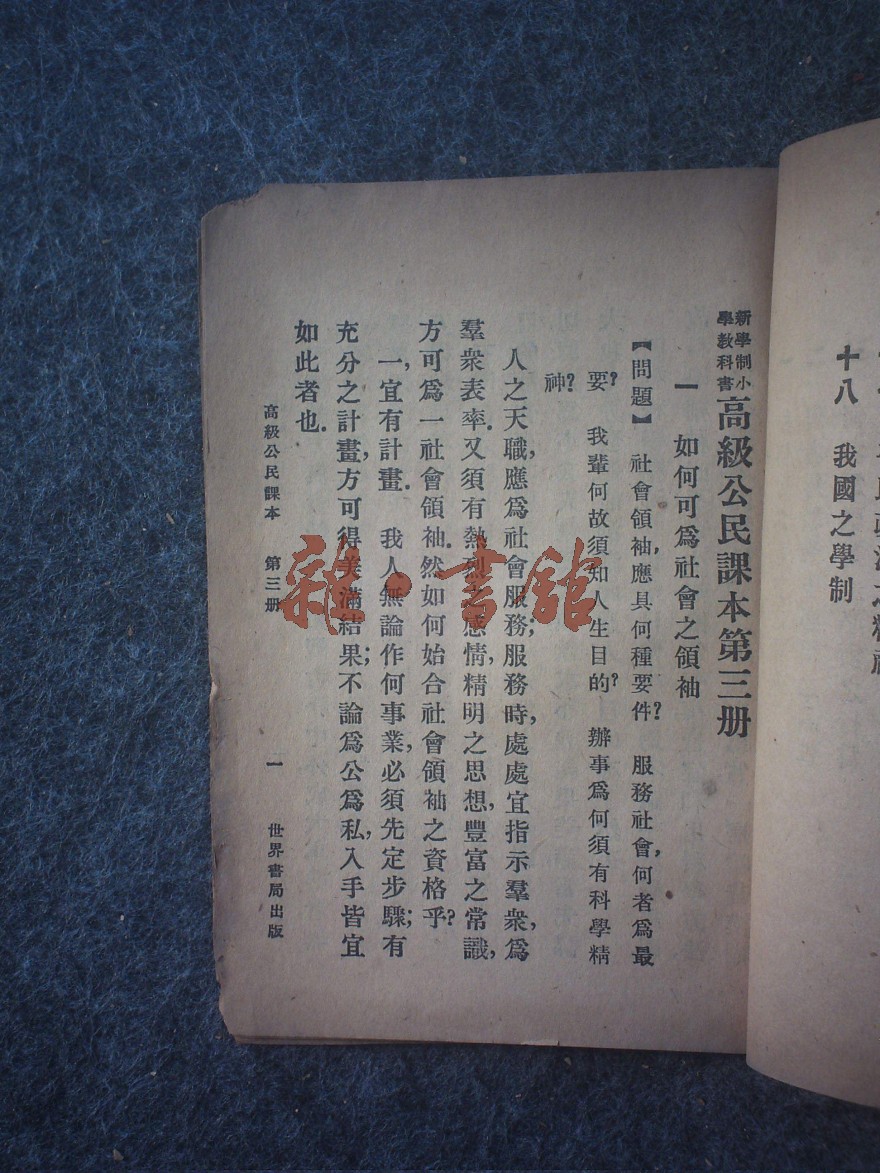 十八　我國之學制
新學制小
學教科書
高級公民課本第三册
一　如何可爲社會之領袖
【問題】　社會領袖，應具何種要件？　服務社會，何者爲最
要？　我輩何故須知人生目的？　辦事爲何須有科學精
神？
人之天職，應爲社會服務；服務時，處處宜指示羣衆，爲
羣衆表率．又須有熱烈之感情，精明之思想，豐富之常識，
方可爲一社會領袖．然如何始合社會領袖之資格乎？
一，宜有計畫．　我人無論作何事業，必須先定步驟；有
充分之計畫，方可得美滿結果；不論爲公爲私，入手皆宜
如此者也．
高級公民課本　第三册　一　世界書局出版
雜·書館